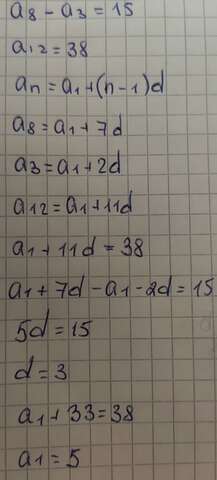 a8 - a3 = 15
a12 = 38
an = a1 + (n-1)d
a8 = a1 + 7d
a3 = a1 + 2d
a12 = a1 + 11d
a1 + 11d = 38
a1 + 7d - a1 - 2d = 15
5d = 15
d = 3
a1 + 33 = 38
a1 = 5